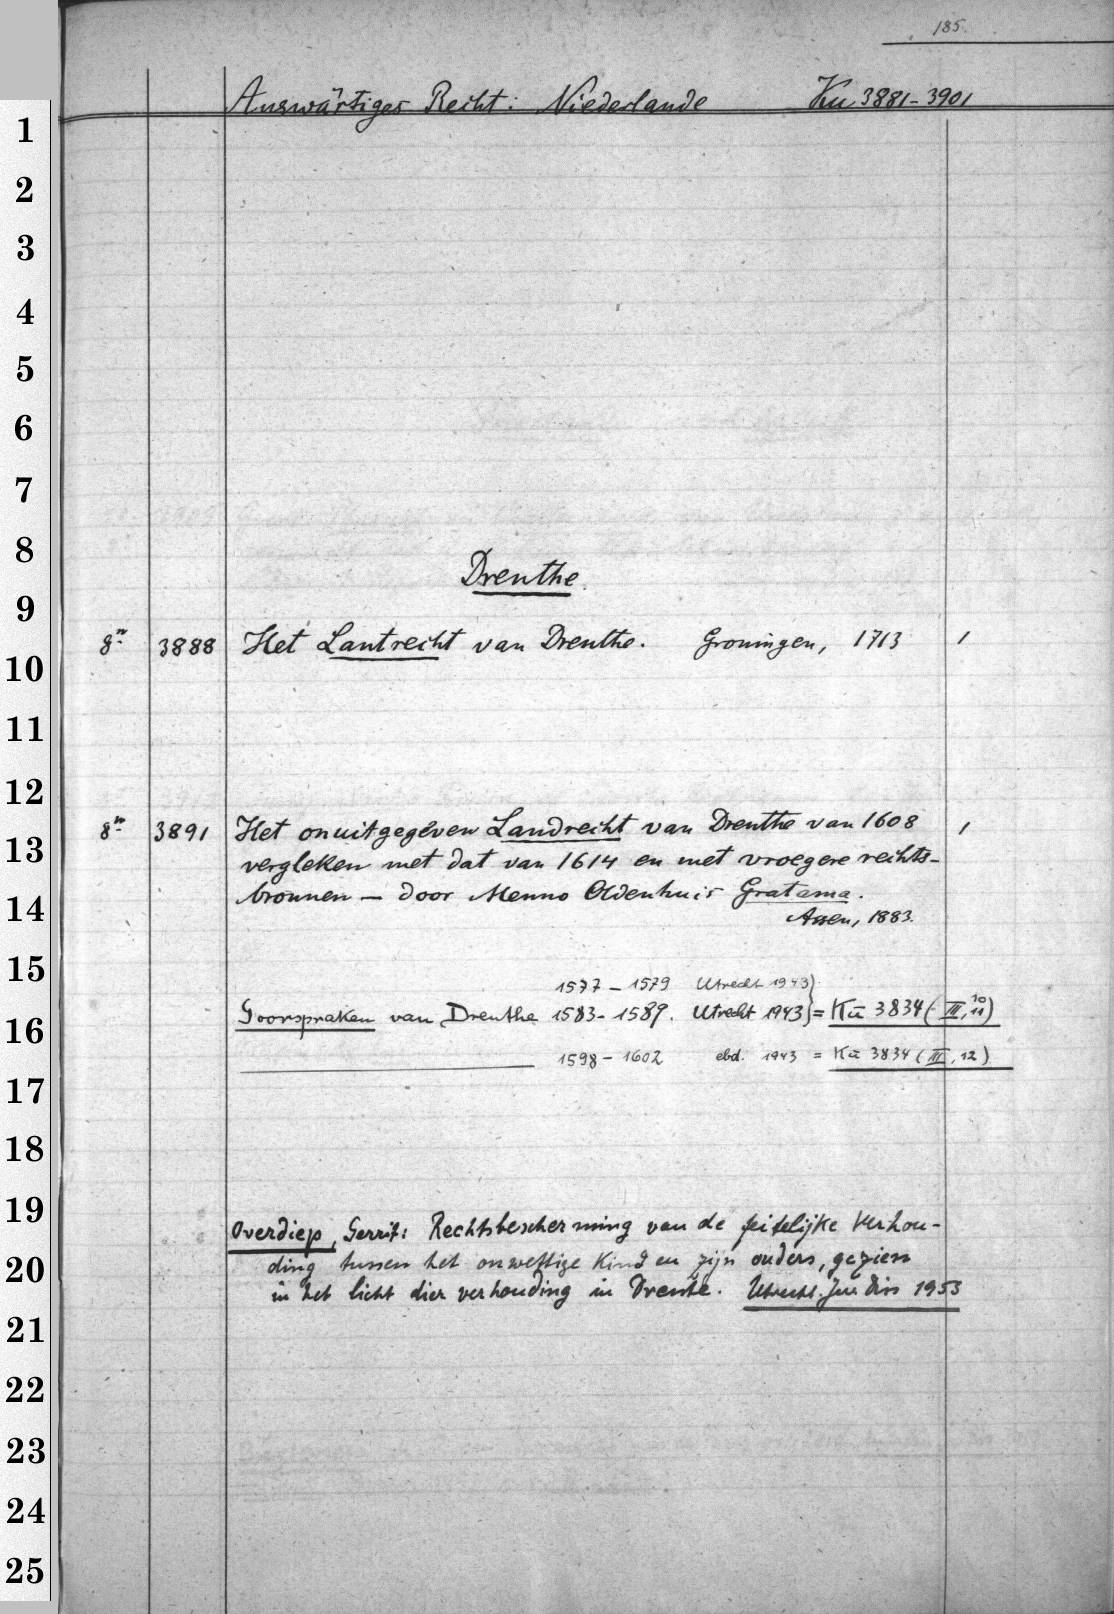 185.
Auswärtiges Recht: Niederlande Ku 3881-3901
1
2
3
4
5
6
7
8
Drenthe.
9
8° 3888 Het Lantrecht van Drenthe. Groningen, 1713 1
10
11
12
8° 3891 Het onuitgegeven Landrecht van Drenthe van 1608 1
13
vergleken met dat van 1614 en met vroegere rechts-
bronnen — door Menno Oldenhuis Gratama.
14
Assen, 1883.
15
1577 – 1579 Utrecht 1943)
Goorspraken van Drenthe 1583-1589. Utrecht 1943} = Ku 3834 (III, 10 11)
16
1598 – 1602 ebd. 1943 = Ku 3834 (III, 12)
17
18
19
Overdiep, Gerrit: Rechtsbescherming van de feitelijke Verhou-
20
ding tussen het onwettige Kind en zijn ouders, gezien
in het licht dier verhouding in Drente. Utrecht. Jur Diss 1953
21
22
23
24
25